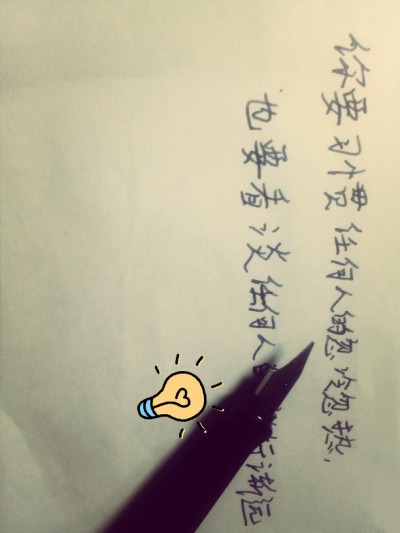 你要习惯任何人的忽冷忽热,
也要看淡任何人 渐远